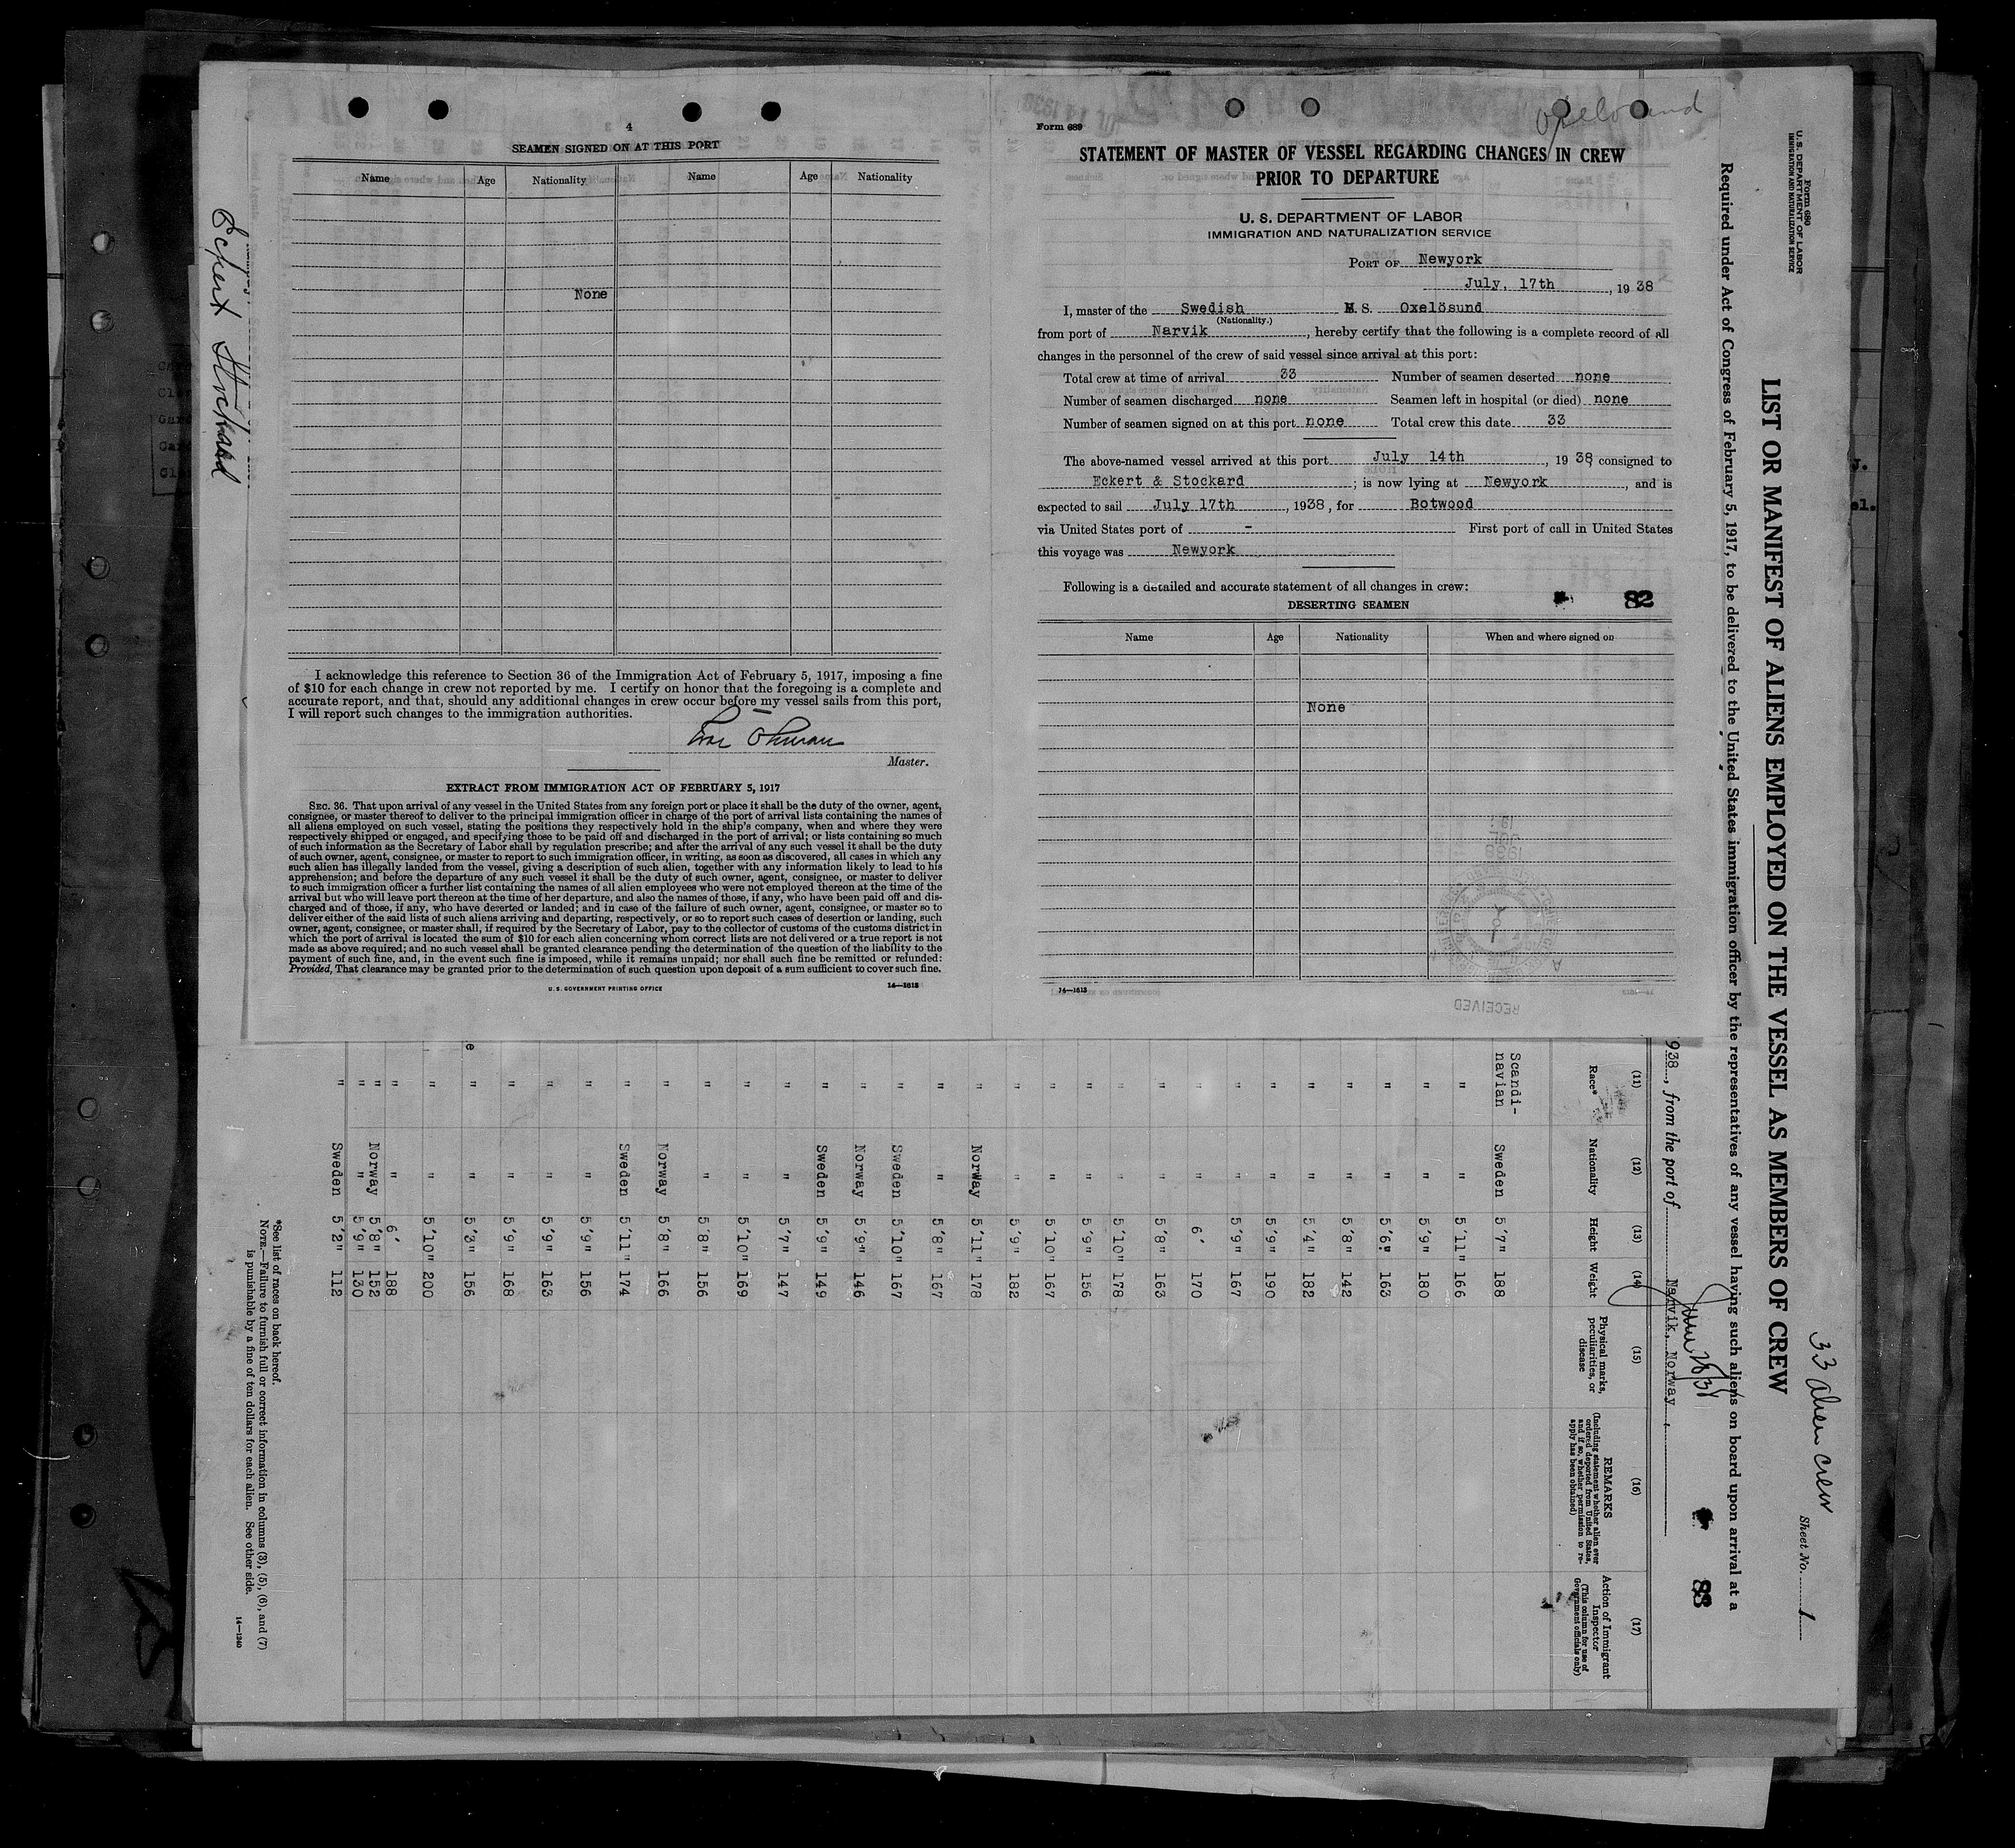 4
SEAMEN SIGNED ON AT THIS PORT
Name Age Nationality Name Age Nationality
None
I acknowledge this reference to Section 36 of the Immigration Act of February 5, 1917, imposing a fine
of $10 for each change in crew not reported by me. I certify on honor that the foregoing is a complete and
accurate report, and that, should any additional changes in crew occur before my vessel sails from this port,
I will report such changes to the immigration authorities.
Ivar Öhman
Master.
EXTRACT FROM IMMIGRATION ACT OF FEBRUARY 5, 1917
SEC. 36. That upon arrival of any vessel in the United States from any foreign port or place it shall be the duty of the owner, agent,
consignee, or master thereof to deliver to the principal immigration officer in charge of the port of arrival lists containing the names of
all aliens employed on such vessel, stating the positions they respectively hold in the ship's company, when and where they were
respectively shipped or engaged, and specifying those to be paid off and discharged in the port of arrival; or lists containing so much
of such information as the Secretary of Labor shall by regulation prescribe; and after the arrival of any such vessel it shall be the duty
of such owner, agent, consignee, or master to report to such immigration officer, in writing, as soon as discovered, all cases in which any
such alien has illegally landed from the vessel, giving a description of such alien, together with any information likely to lead to his
apprehension; and before the departure of any such vessel it shall be the duty of such owner, agent, consignee, or master to deliver
to such immigration officer a further list containing the names of all alien employees who were not employed thereon at the time of the
arrival but who will leave port thereon at the time of her departure, and also the names of those, if any, who have been paid off and dis-
charged and of those, if any, who have deserted or landed; and in case of the failure of such owner, agent, consignee, or master so to
deliver either of the said lists of such aliens arriving and departing, respectively, or so to report such cases of desertion or landing, such
owner, agent, consignee, or master shall, if required by the Secretary of Labor, pay to the collector of customs of the customs district in
which the port of arrival is located the sum of $10 for each alien concerning whom correct lists are not delivered or a true report is not
made as above required; and no such vessel shall be granted clearance pending the determination of the question of the liability to the
payment of such fine, and, in the event such fine is imposed, while it remains unpaid; nor shall such fine be remitted or refunded:
Provided, That clearance may be granted prior to the determination of such question upon deposit of a sum sufficient to cover such fine.
U. S. GOVERNMENT PRINTING OFFICE 14—1613
Oxelosund
Form 689
STATEMENT OF MASTER OF VESSEL REGARDING CHANGES IN CREW
PRIOR TO DEPARTURE
U. S. DEPARTMENT OF LABOR
IMMIGRATION AND NATURALIZATION SERVICE
PORT OF Newyork
July, 17th, 1938
I, master of the Swedish M. S. Oxelösund
(Nationality.)
from port of Narvik, hereby certify that the following is a complete record of all
changes in the personnel of the crew of said vessel since arrival at this port:
Total crew at time of arrival 33 Number of seamen deserted none
Number of seamen discharged none Seamen left in hospital (or died) none
Number of seamen signed on at this port none Total crew this date 33
The above-named vessel arrived at this port July 14th, 1938, consigned to
Eckert & Stockard; is now lying at Newyork, and is
expected to sail July 17th, 1938, for Botwood
via United States port of - First port of call in United States
this voyage was Newyork
Following is a detailed and accurate statement of all changes in crew:
82
DESERTING SEAMEN
Name Age Nationality When and where signed on
None
14—1613
RECEIVED
Eckert Stockard
Form 680
U. S. DEPARTMENT OF LABOR
IMMIGRATION AND NATURALIZATION SERVICE
33 alien crew
Sheet No. 1
LIST OR MANIFEST OF ALIENS EMPLOYED ON THE VESSEL AS MEMBERS OF CREW
Required under Act of Congress of February 5, 1917, to be delivered to the United States immigration officer by the representatives of any vessel having such aliens on board upon arrival at a
83
938, from the port of Narvik, Norway,
(11) (12) (13) (14) (15) (16) (17)
Race* Nationality Height Weight Physical marks, peculiarities, or disease REMARKS (Including statement whether alien ever ordered deported from United States, and if so, whether permission to reapply has been obtained) Action of Immigrant Inspector (This column for use of Government officials only)
Scandi-
navian Sweden 5'7" 188
" " 5'11" 166
" " 5'9" 180
" " 5'6" 163
" " 5'8" 142
" " 5'4" 182
" " 5'9" 190
" " 5'9" 167
" " 6' 170
" " 5'8" 163
" " 5'10" 178
" " 5'9" 156
" " 5'10" 167
" " 5'9" 182
" Norway 5'11" 178
" " 5'8" 167
" Sweden 5'10" 167
" Norway 5'9" 146
" Sweden 5'9" 149
" " 5'7" 147
" " 5'10" 169
" " 5'8" 156
" Norway 5'8" 166
" Sweden 5'11" 174
" " 5'9" 156
" " 5'9" 163
" " 5'9" 168
" " 5'3" 156
" " 5'10" 200
" " 6' 188
" Norway 5'8" 152
" " 5'9" 130
" Sweden 5'2" 112
*See list of races on back hereof.
NOTE.—Failure to furnish full or correct information in columns (3), (5), (6), and (7)
is punishable by a fine of ten dollars for each alien. See other side.
14—1240